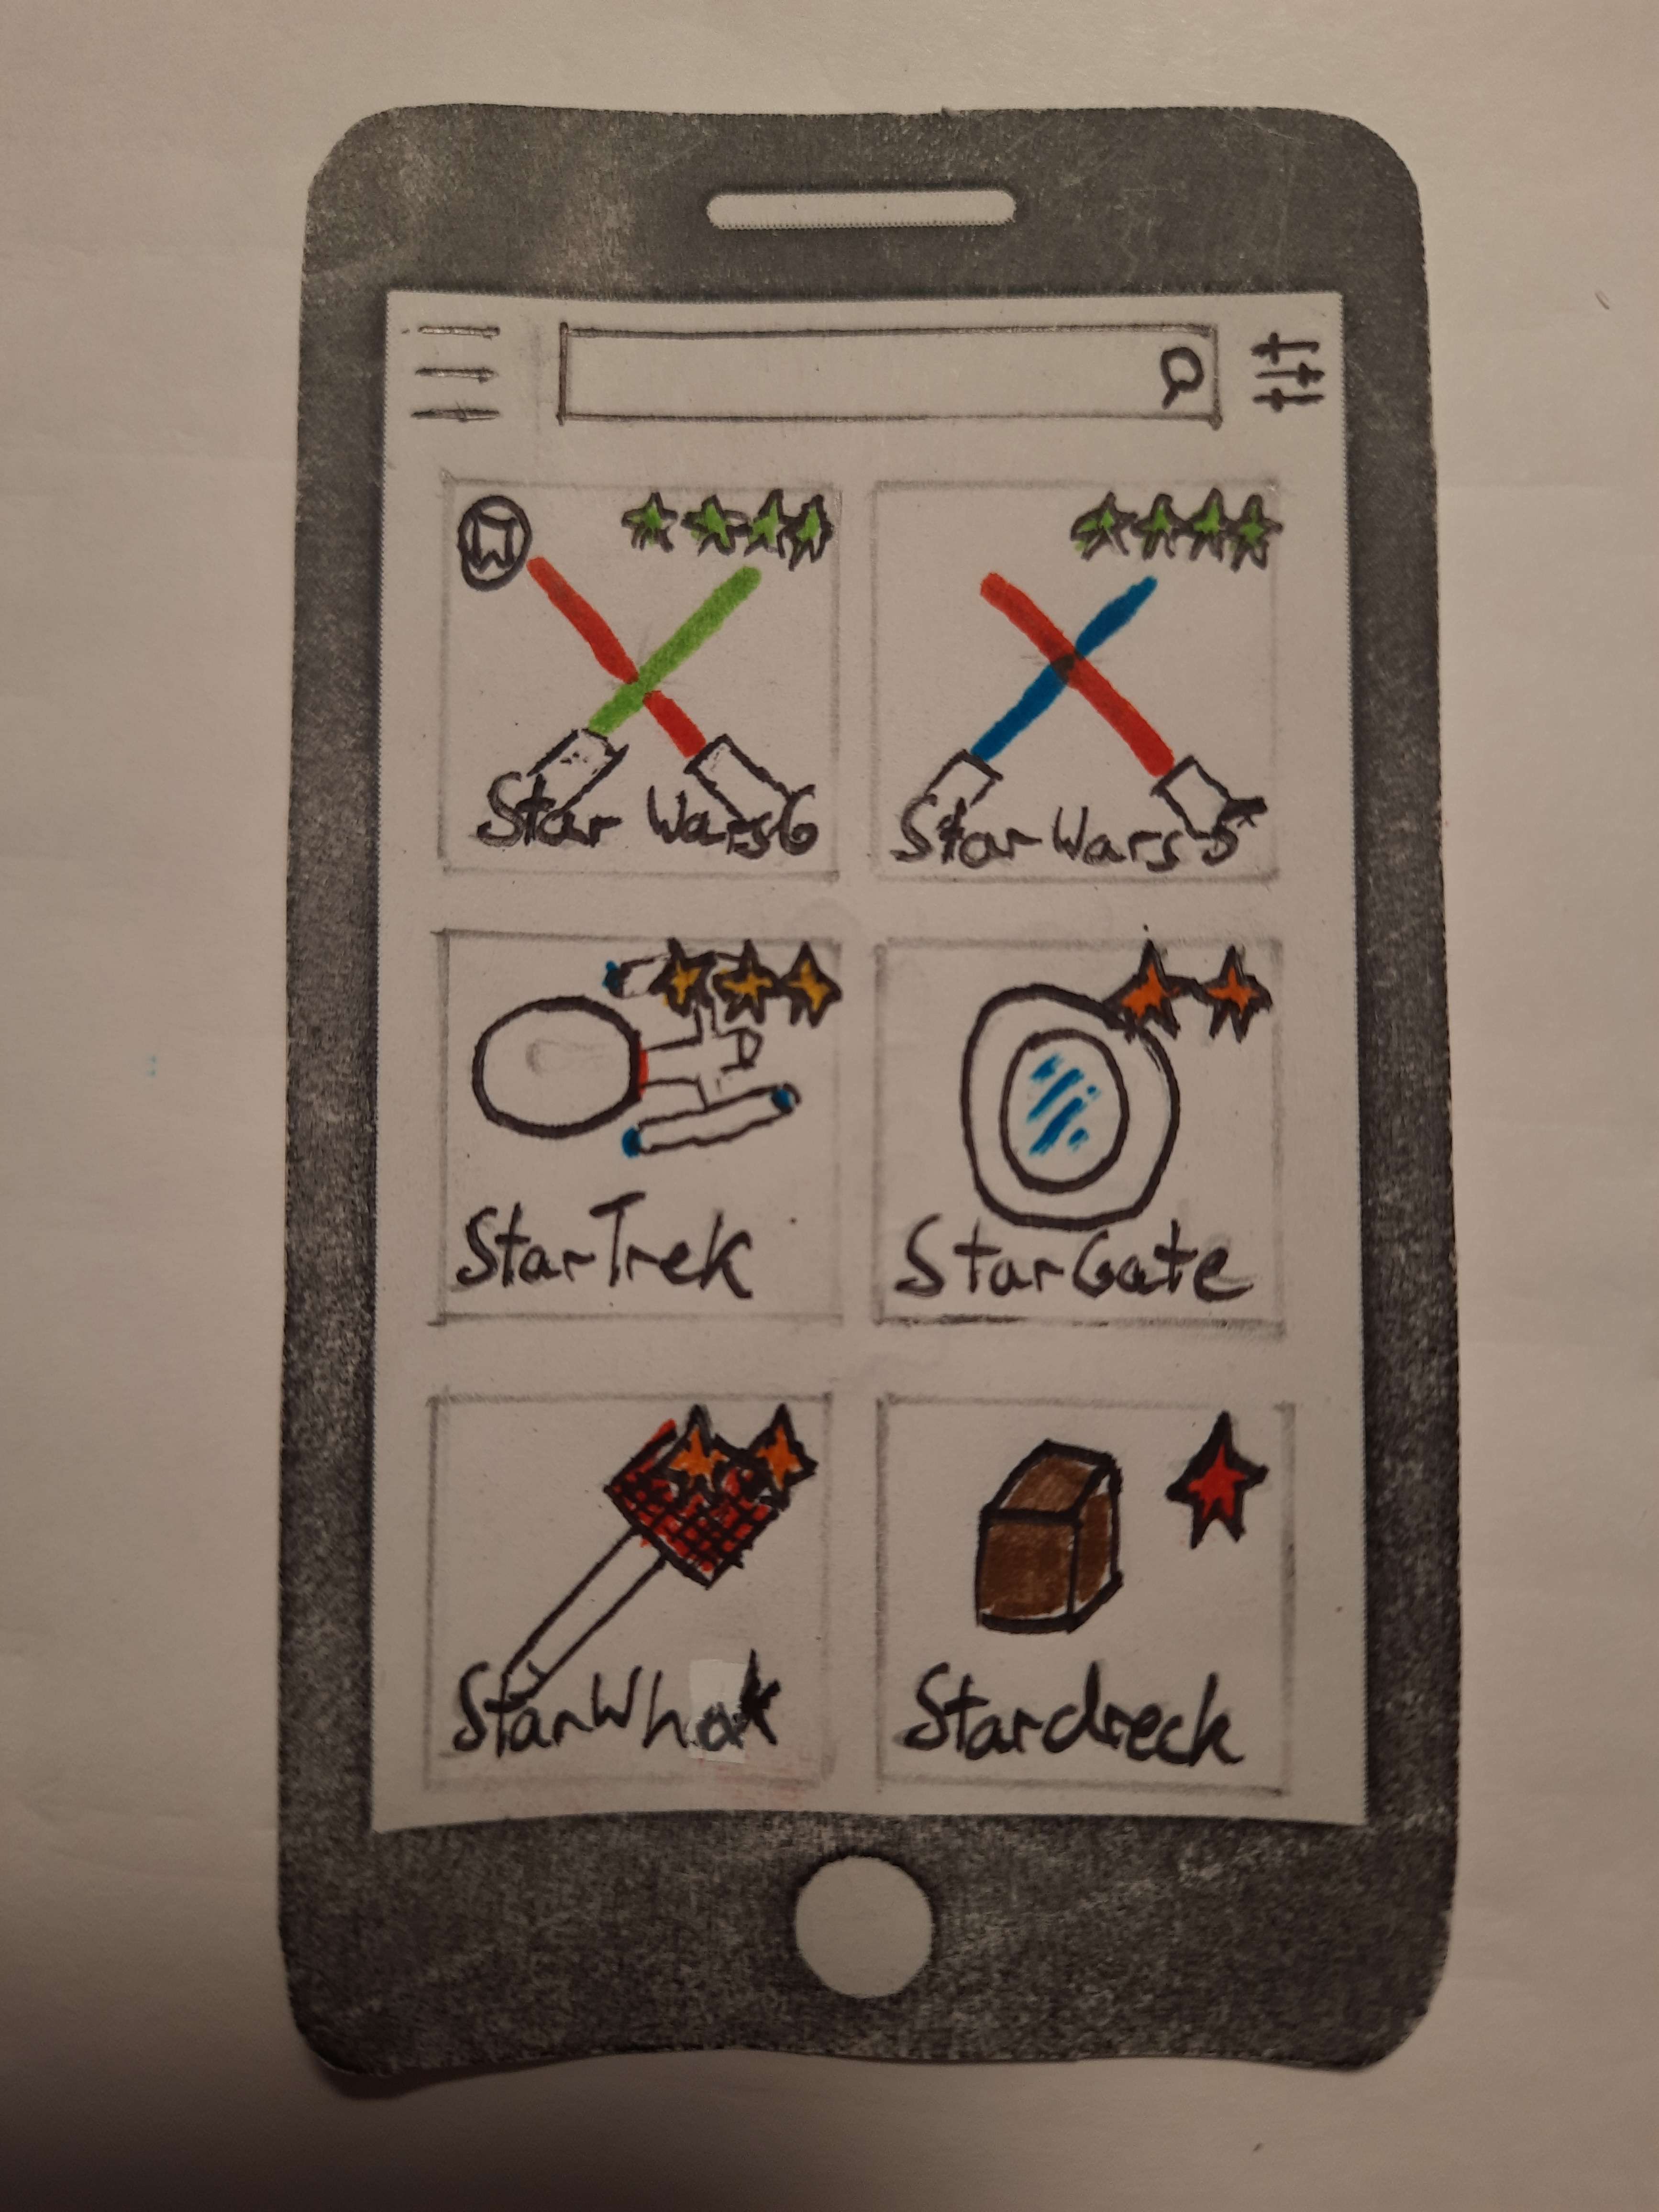 Star Wars 6
Star Wars 5
StarTrek
StarGate
StarWhak
Stardreck